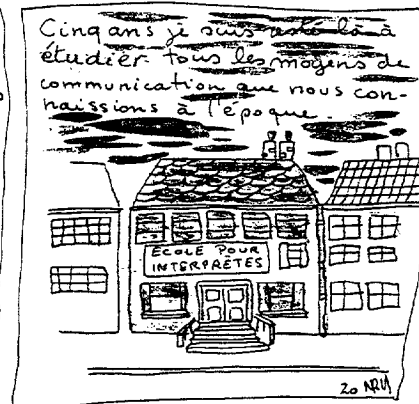 Cinq ans je suis resté là à
étudier tous les moyens de
communication que nous con-
naissions à l'époque.
ÉCOLE POUR
INTERPRÈTES
20 NRU